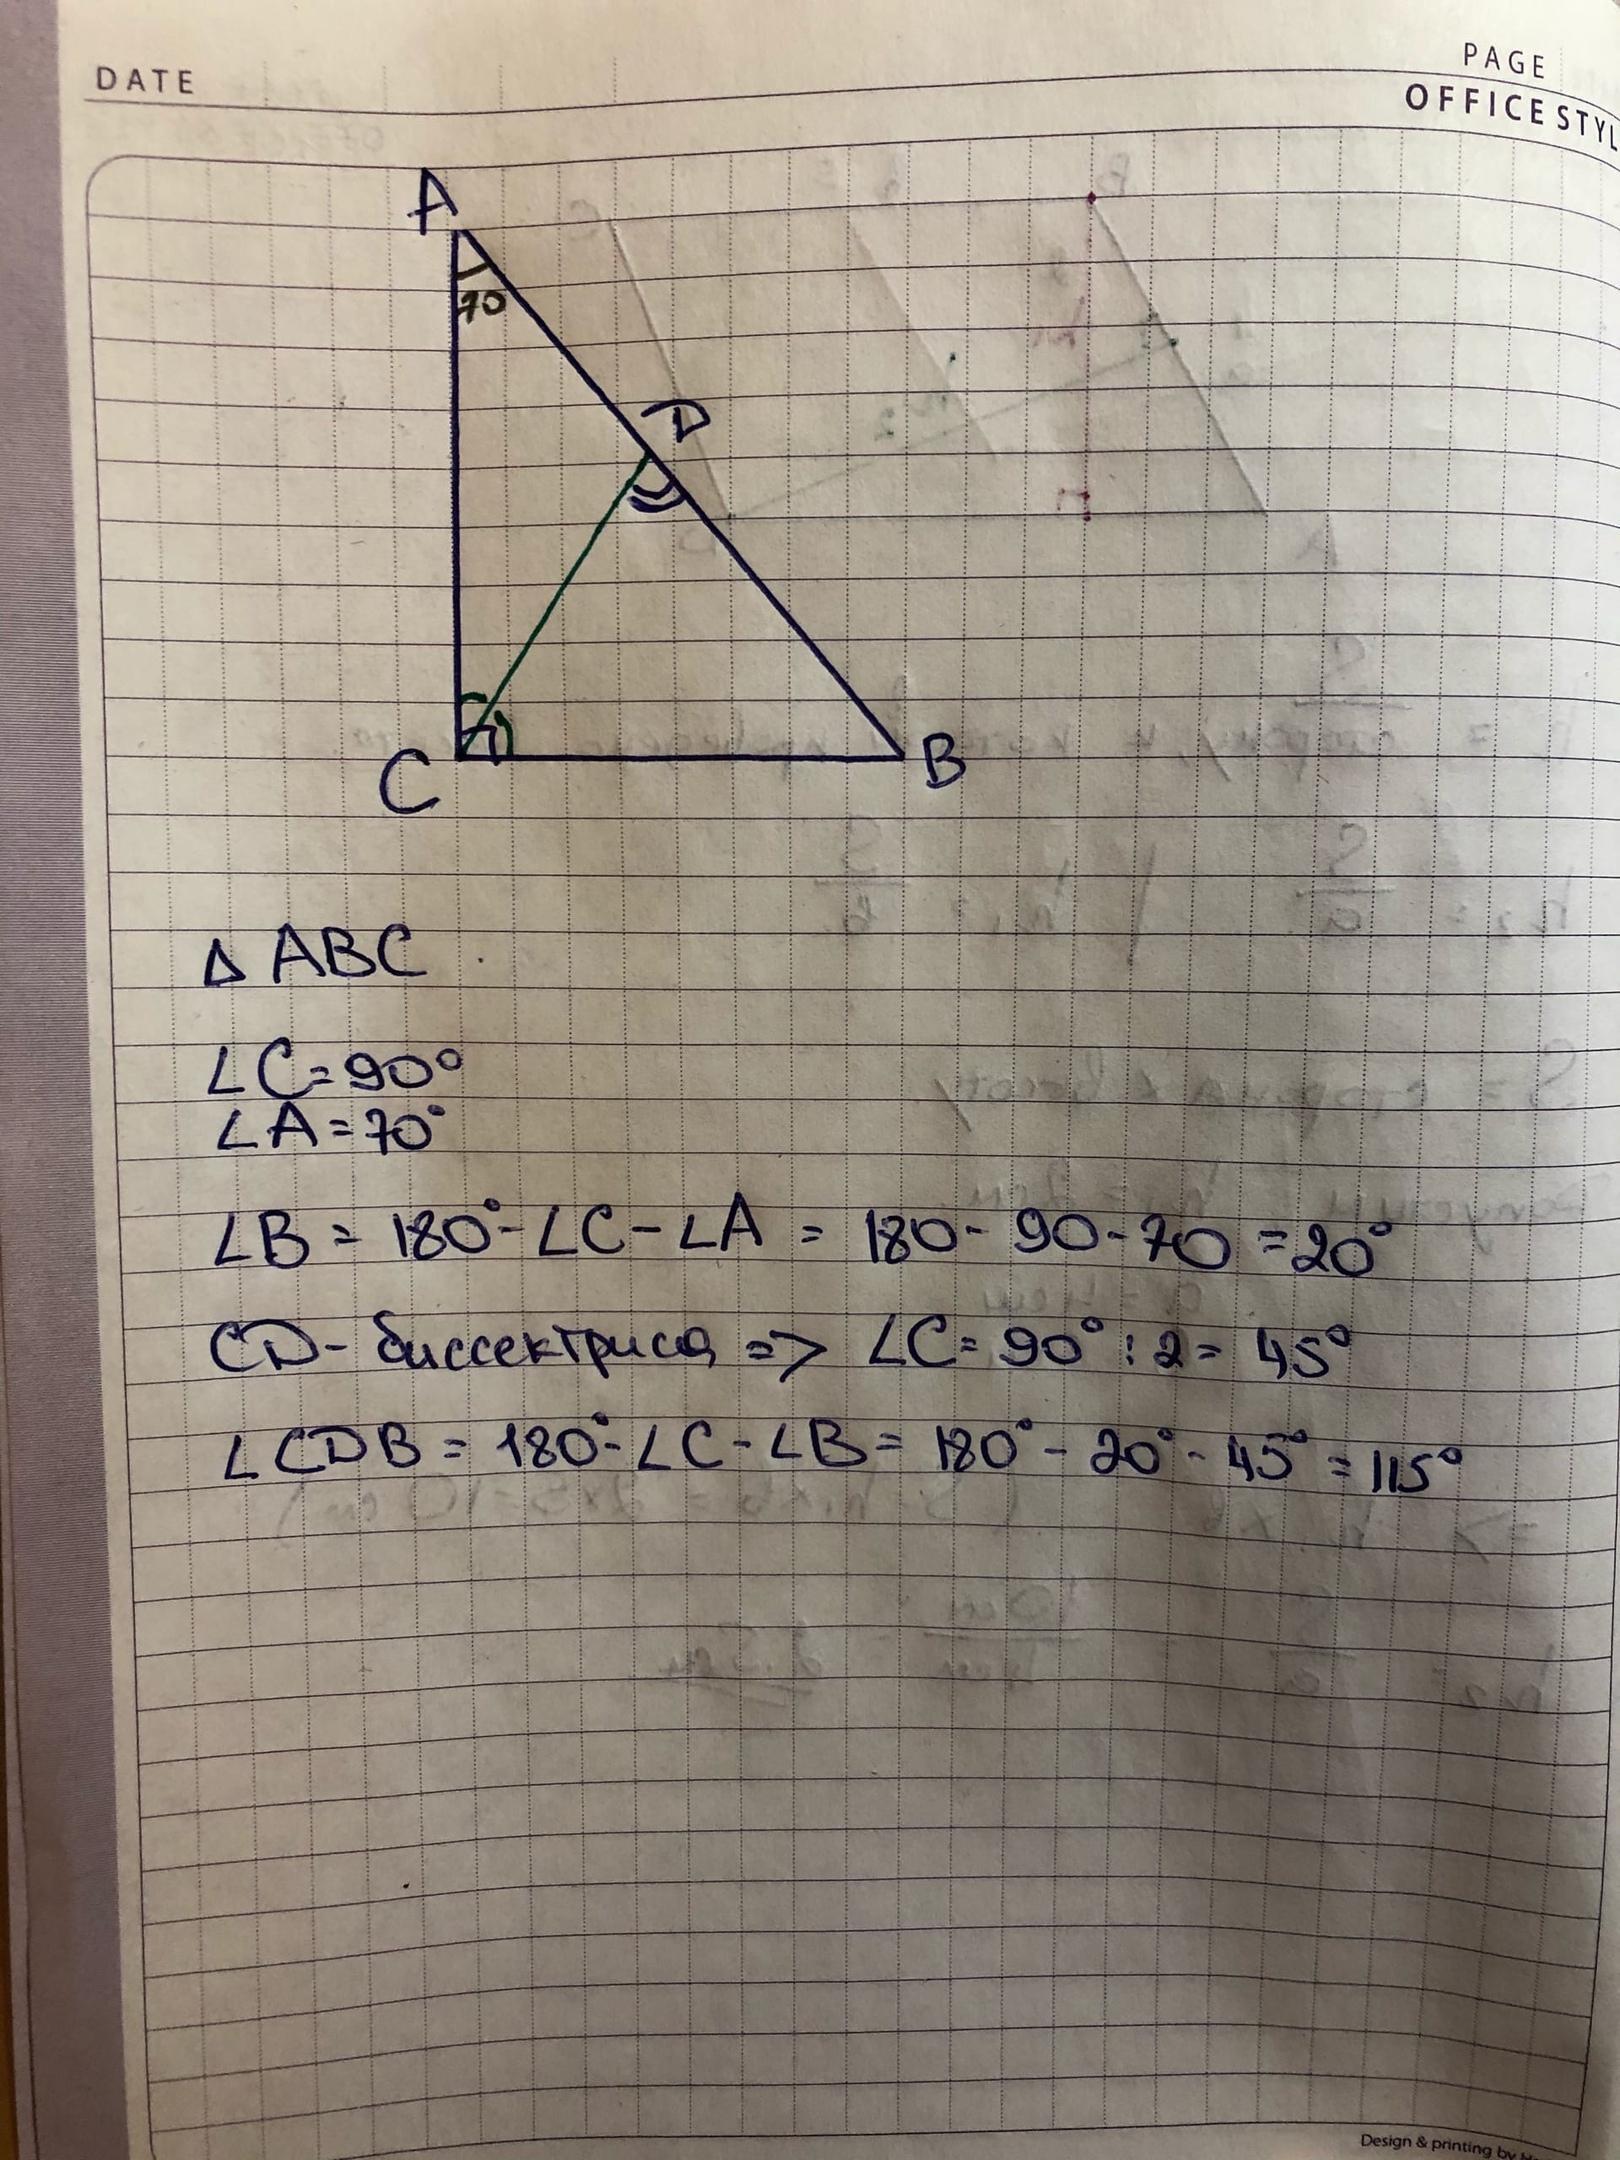 DATE
PAGE
OFFICE STYL
A
70
D
C
B
Δ ABC
∠C=90°
∠A=70°
∠B = 180°-∠C-∠A = 180-90-70 =20°
CD-биссектриса => ∠C=90°:2=45°
∠CDB = 180°-∠C-∠B= 180°-20°-45°=115°
Design & printing by